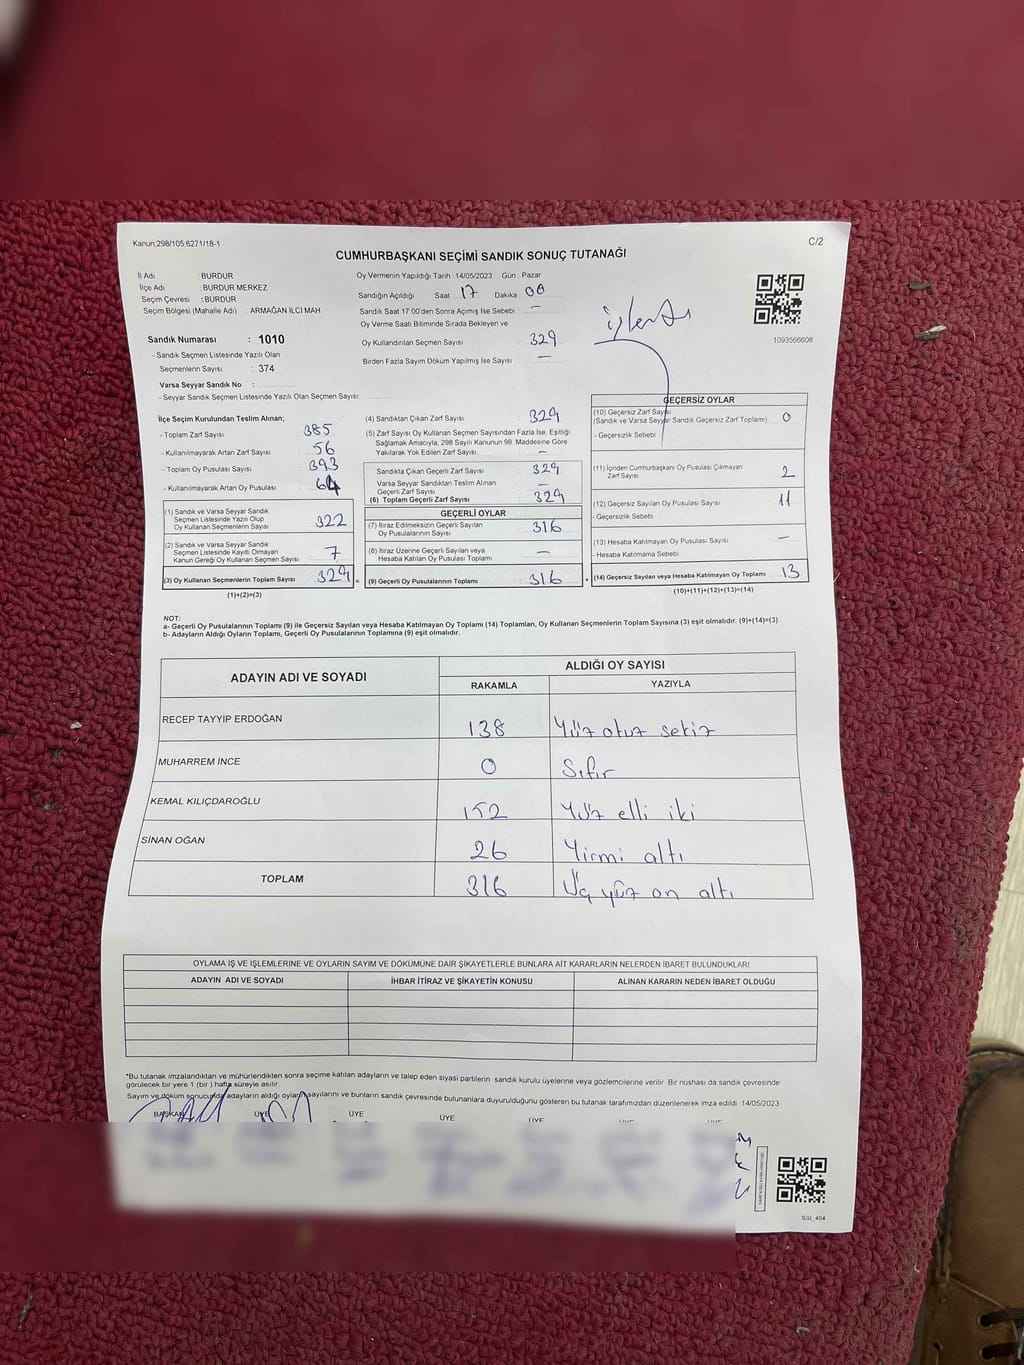 Kanun;298/105,6271/18-1
C/2
CUMHURBAŞKANI SEÇİMİ SANDIK SONUÇ TUTANAĞI
İl Adı : BURDUR
İlçe Adı : BURDUR MERKEZ
Seçim Çevresi : BURDUR
Seçim Bölgesi (Mahalle Adı) : ARMAĞAN İLCİ MAH.
Sandık Numarası : 1010
- Sandık Seçmen Listesinde Yazılı Olan
Seçmenlerin Sayısı : 374
Varsa Seyyar Sandık No :
- Seyyar Sandık Seçmen Listesinde Yazılı Olan Seçmen Sayısı:
Oy Vermenin Yapıldığı Tarih : 14/05/2023 Gün : Pazar
Sandığın Açıldığı Saat 17 Dakika : 08
Sandık Saat 17:00'den Sonra Açımış İse Sebebi : -
Oy Verme Saati Bitiminde Sırada Bekleyen ve
Oy Kullandırılan Seçmen Sayısı : 329
Birden Fazla Sayım Döküm Yapılmış İse Sayısı : -
işlendi
1093566608
İlçe Seçim Kurulundan Teslim Alınan;
- Toplam Zarf Sayısı : 385
- Kullanılmayarak Artan Zarf Sayısı : 56
- Toplam Oy Pusulası Sayısı : 393
- Kullanılmayarak Artan Oy Pusulası : 64
(1) Sandık ve Varsa Seyyar Sandık
Seçmen Listesinde Yazılı Olup
Oy Kullanan Seçmenlerin Sayısı : 322
(2) Sandık ve Varsa Seyyar Sandık
Seçmen Listesinde Kaydı Olmayan
Kanun Gereği Oy Kullanan Seçmen Sayısı : 7
(3) Oy Kullanan Seçmenlerin Toplam Sayısı : 329 =
(1)+(2)=(3)
(4) Sandıktan Çıkan Zarf Sayısı : 329
(5) Zarf Sayısı Oy Kullanan Seçmen Sayısından Fazla İse, Eşitliği
Sağlamak Amacıyla, 298 Sayılı Kanunun 98. Maddesine Göre
Yakılarak Yok Edilen Zarf Sayısı : -
Sandıkta Çıkan Geçerli Zarf Sayısı : 329
Varsa Seyyar Sandıktan Teslim Alınan
Geçerli Zarf Sayısı : -
(6) Toplam Geçerli Zarf Sayısı : 329
GEÇERLİ OYLAR
(7) İtiraz Edilmeksizin Geçerli Sayılan
Oy Pusulalarının Sayısı : 316
(8) İtiraz Üzerine Geçerli Sayılan veya
Hesaba Katılan Oy Pusulası Toplamı : -
(9) Geçerli Oy Pusulalarının Toplamı : 316 +
GEÇERSİZ OYLAR
(10) Geçersiz Zarf Sayısı
(Sandık ve Varsa Seyyar Sandık Geçersiz Zarf Toplamı) : 0
- Geçersizlik Sebebi :
(11) İçinden Cumhurbaşkanı Oy Pusulası Çıkmayan
Zarf Sayısı : 2
(12) Geçersiz Sayılan Oy Pusulası Sayısı : 11
- Geçersizlik Sebebi :
(13) Hesaba Katılmayan Oy Pusulası Sayısı : -
- Hesaba Katılmama Sebebi :
(14) Geçersiz Sayılan veya Hesaba Katılmayan Oy Toplamı : 13
(10)+(11)+(12)+(13)=(14)
NOT:
a- Geçerli Oy Pusulalarının Toplamı (9) ile Geçersiz Sayılan veya Hesaba Katılmayan Oy Toplamı (14) Toplamları, Oy Kullanan Seçmenlerin Toplam Sayısına (3) eşit olmalıdır. (9)+(14)=(3)
b- Adayların Aldığı Oyların Toplamı, Geçerli Oy Pusulalarının Toplamına (9) eşit olmalıdır.
ADAYIN ADI VE SOYADI
ALDIĞI OY SAYISI
RAKAMLA YAZIYLA
RECEP TAYYİP ERDOĞAN 138 Yüz otuz sekiz
MUHARREM İNCE 0 Sıfır
KEMAL KILIÇDAROĞLU 152 Yüz elli iki
SİNAN OĞAN 26 Yirmi altı
TOPLAM 316 Üç yüz on altı
OYLAMA İŞ VE İŞLEMLERİNE VE OYLARIN SAYIM VE DÖKÜMÜNE DAİR ŞİKAYETLERLE BUNLARA AİT KARARLARIN NELERDEN İBARET BULUNDUKLARI
ADAYIN ADI VE SOYADI İHBAR İTİRAZ VE ŞİKAYETİN KONUSU ALINAN KARARIN NEDEN İBARET OLDUĞU
*Bu tutanak imzalandıktan ve mühürlendikten sonra seçime katılan adayların ve talep eden siyasi partilerin sandık kurulu üyelerine veya gözlemcilerine verilir. Bir nüshası da sandık çevresinde
görülecek bir yere 1 (bir ) hafta süreyle asılır.
Sayım ve döküm sonucunda adayların aldığı oyların sayılarını ve bunların sandık çevresinde bulunanlara duyurulduğunu gösteren bu tutanak tarafımızdan düzenlenerek imza edildi. 14/05/2023
BAŞKAN ÜYE ÜYE ÜYE ÜYE ÜYE ÜYE
SSİ_404